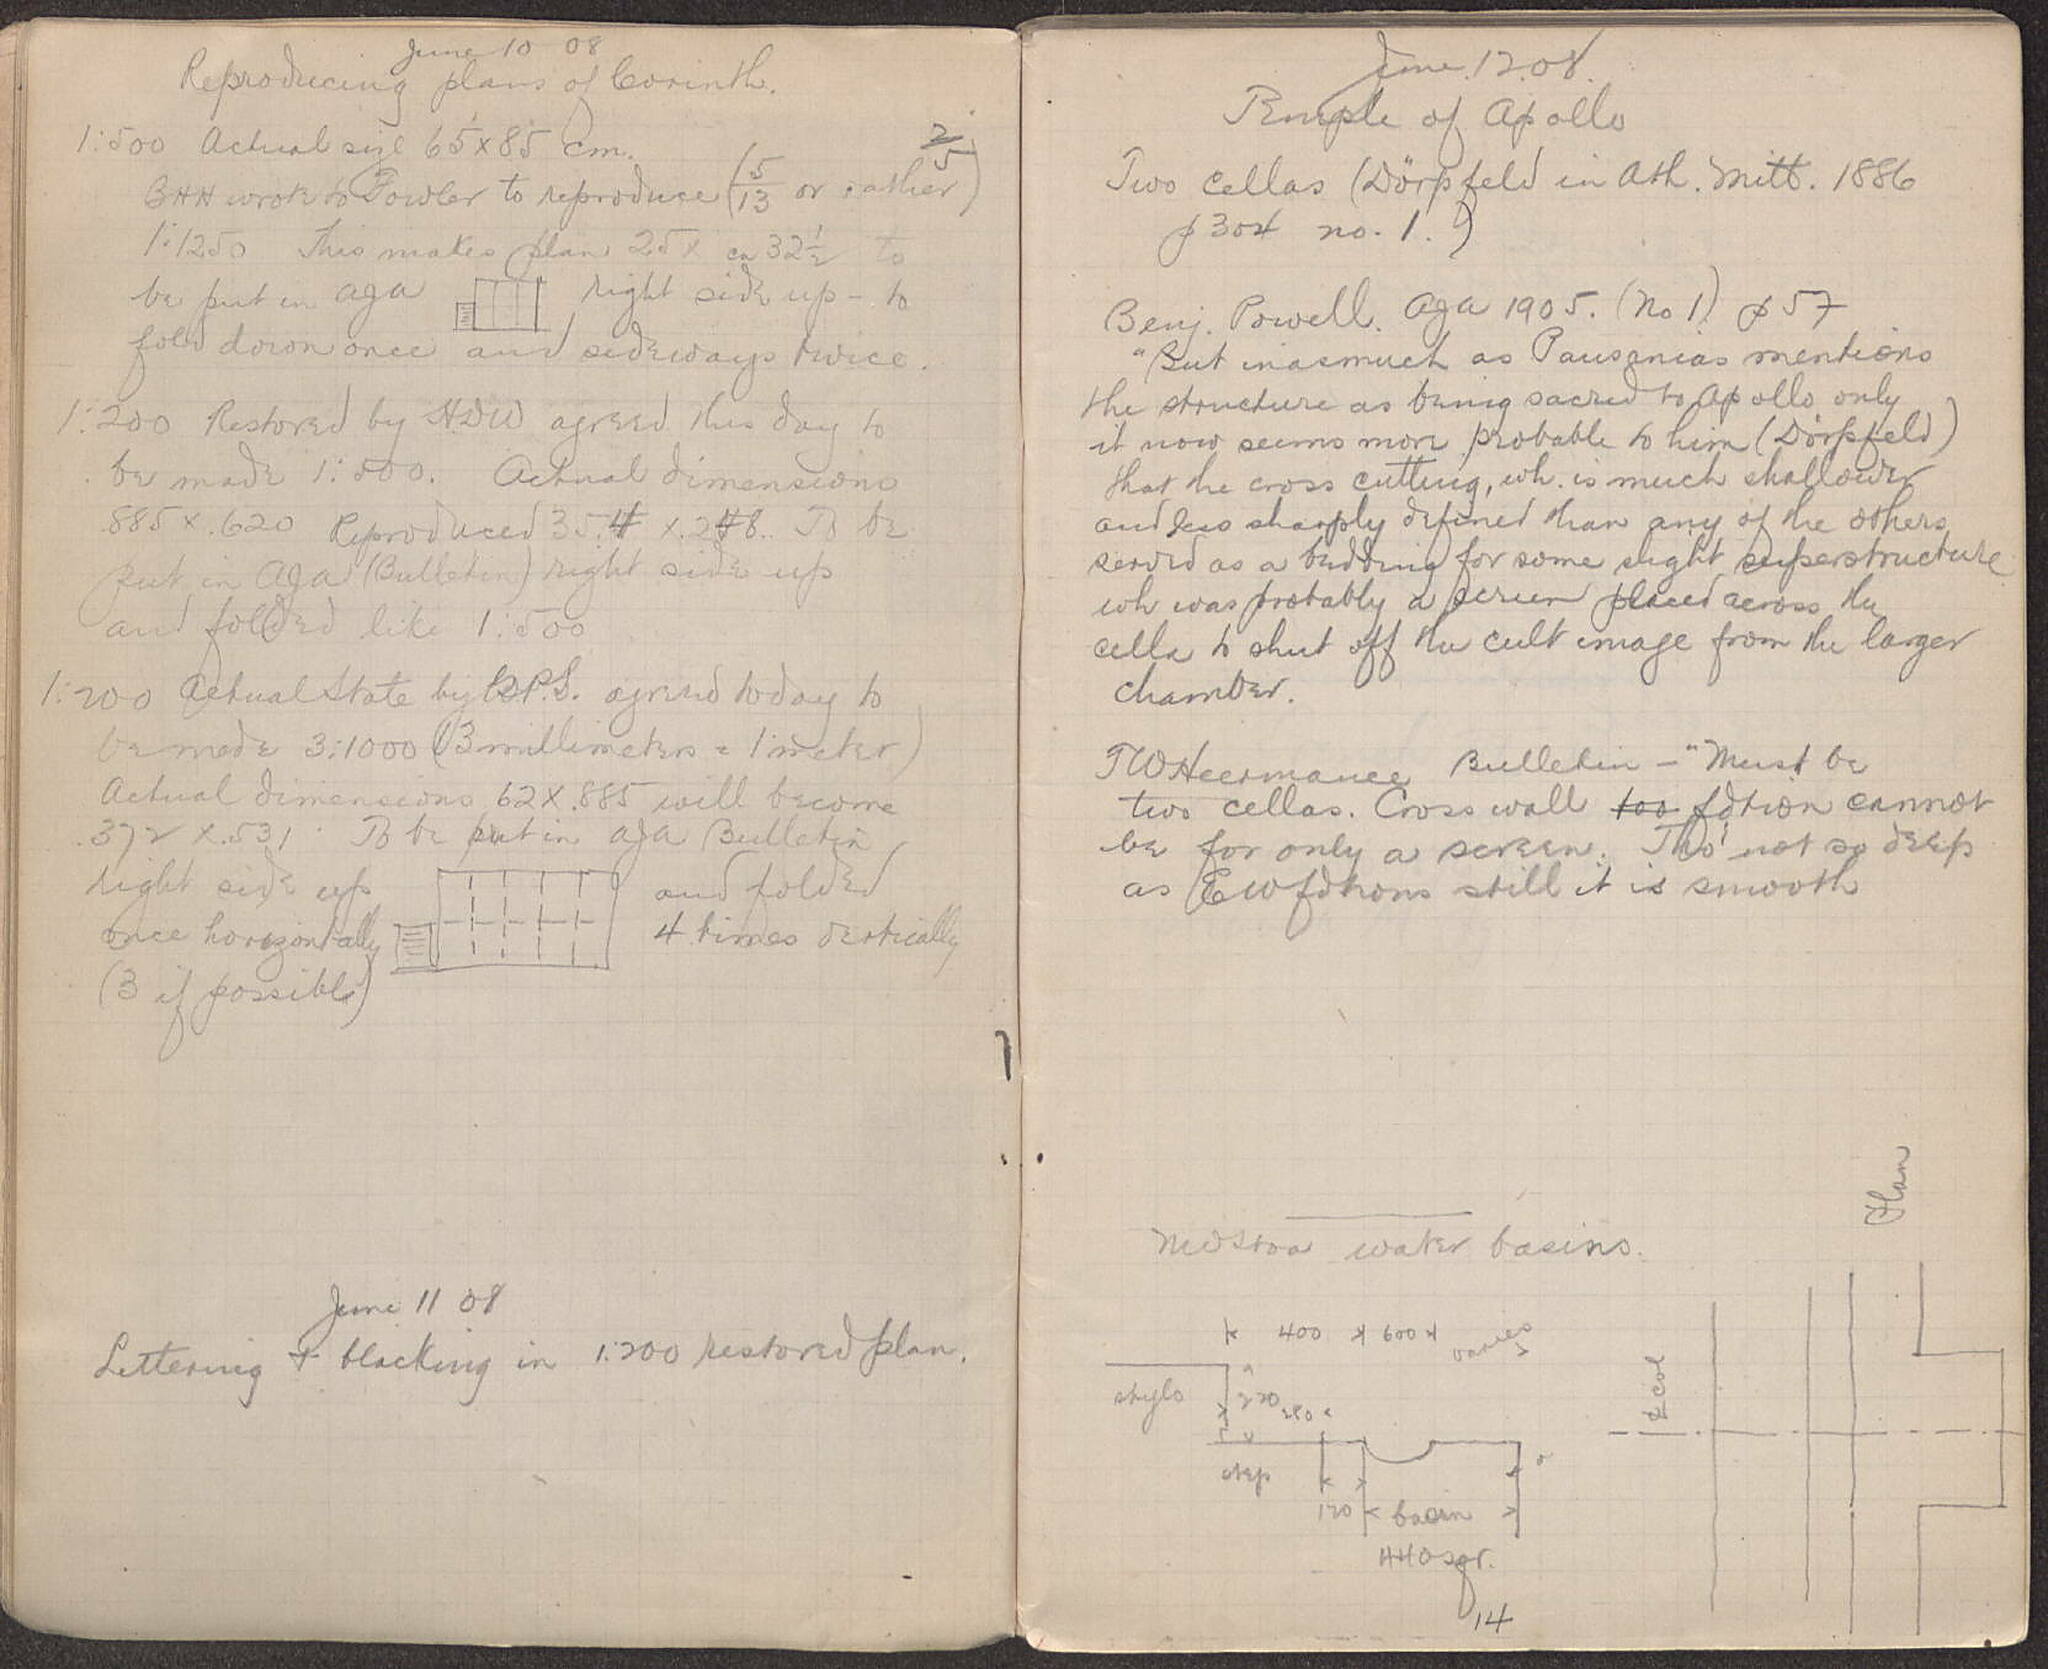 June 10 08
Reproducing plans of Corinth.
1:500 Actual size 65 x 85 cm.
BHH wrote to Fowler to reproduce (5/13 or rather 2/5)
1:1250 This makes plan 25 x ca 32 1/2 to
be put in AJA right side up - to
fold down once and sideways twice.
1:200 Restored by HDW agreed this day to
be made 1:500. Actual dimensions
.885 x .620 Reproduced 35.4 x .248. To be
put in AJA (Bulletin) right side up
and folded like 1:500
1:200 Actual State by agreed today to
be made 3:1000 (3 millimeters = 1 meter)
Actual dimensions 62 x .885 will become
.372 x .531. To be put in AJA Bulletin
right side up and folded
once horizontally 4 times vertically
(3 if possible)
June 11 08
Lettering + blacking in 1:200 restored plan.
June. 12. 08.
Temple of Apollo
Two cellas (Dörpfeld in Ath. Mitt. 1886
p 304 no. 1.)
Benj. Powell. AJA 1905. (No 1) p 57
"But inasmuch as Pausanias mentions
the structure as being sacred to Apollo only
it now seems more probable to him (Dörpfeld)
that the cross cutting, wh. is much shallower
and less sharply defined than any of the others
served as a bedding for some slight superstructure
wh was probably a screen placed across the
cella to shut off the cult image from the larger
chamber.
TWHeermance Bulletin - "Must be
two cellas. Cross wall too fdtion cannot
be for only a screen. Tho' not so deep
as EW fdtions still it is smooth
Plan
NW Stoa water basins.
400 600 varies
stylo 220
280
step
120 basin
440 sqr.
col
14